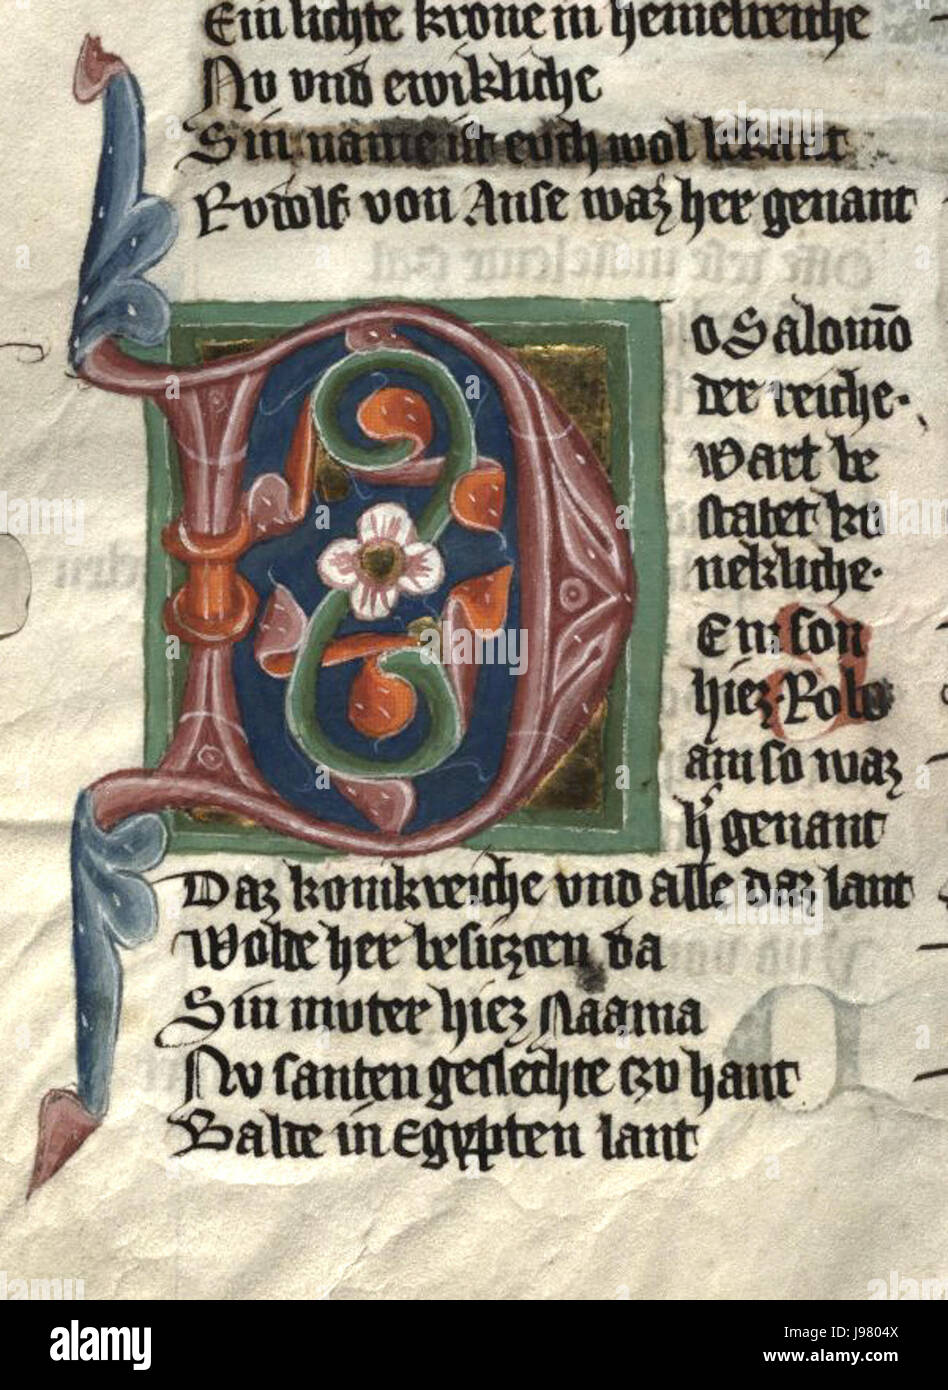 Ein lichte krone in hemelreiche
Nv vnd ewikliche
Sin name ist evch wol bekant
Rvdolf von Anse waz her genant
Do Salomō
der reiche.
wart be
statet ku
neklichе.
Ein son
hiez. Robo
am so waz
h' genant
Daz konikreiche vnd alle daz lant
Wolde her besitzen da
Sin muter hiez Naama
Nv santen geslechte czv hant
Balde in Egypten lant
alamy
Image ID: J9804X
www.alamy.com